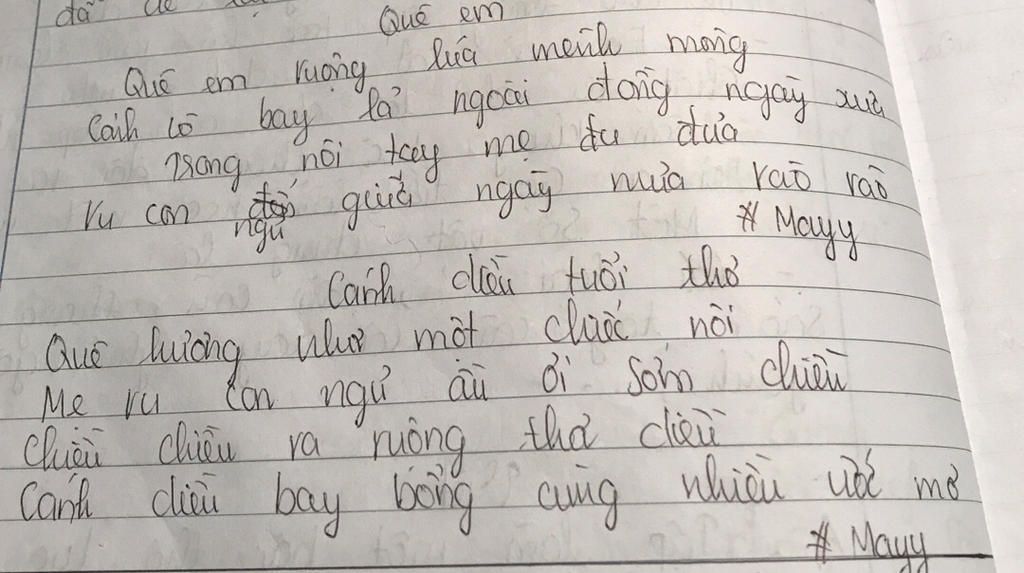 Quê em
Quê em ruộng lúa mênh mông
Cánh cò bay lả ngoài đồng ngày xưa
Trong nôi tay mẹ đu đưa
ru con ngủ giữa ngày mưa rào rào
# Mayy
Cánh diều tuổi thơ
Quê hương như một chiếc nôi
Mẹ ru con ngủ ầu ơi sớm chiều
Chiều chiều ra ruộng thả diều
Cánh diều bay bổng cùng nhiều ước mơ
# Mayy